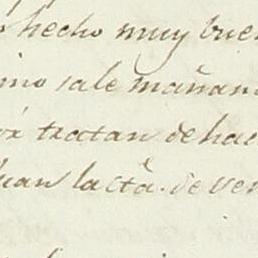 hecho muy buen
sale mañana
tratan de hac
la ctã. de ven